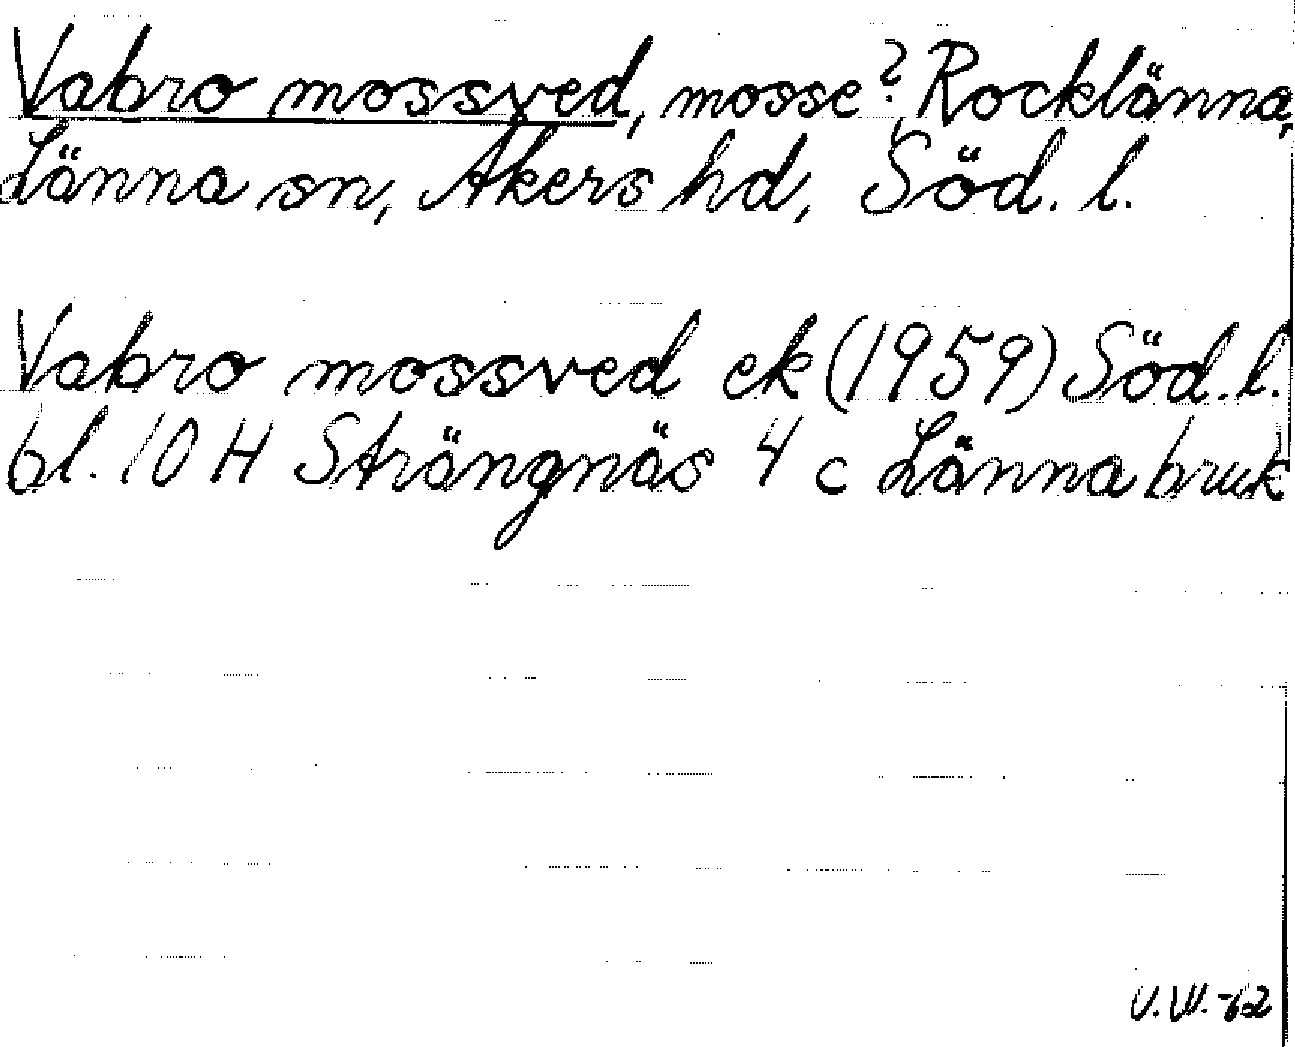 Vabro mossved, mosse?, Rocklänna,
Länna sn, Åkers hd, Söd. l.
Vabro mossved ek (1959) Söd. l.
bl. 10 H Strängnäs 4 c Länna bruk
V.W.-62